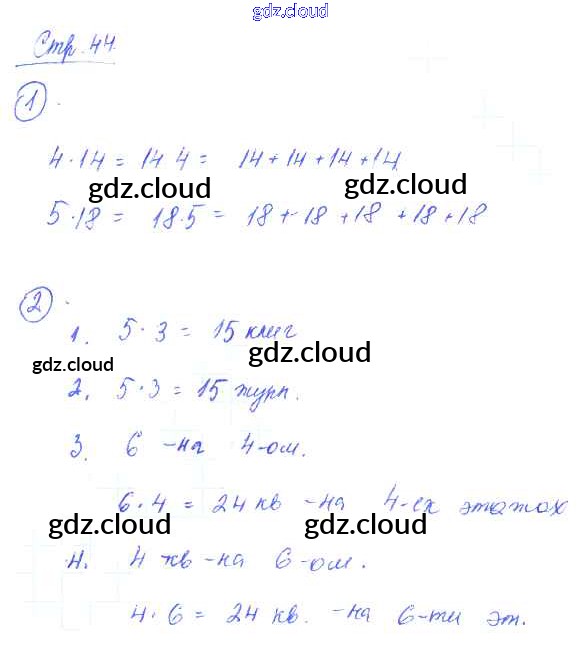 gdz.cloud
Стр. 44.
1.
4·14 = 14 4 = 14 + 14 + 14 + 14
gdz.cloud gdz.cloud
5·18 = 18·5 = 18 + 18 + 18 + 18 + 18
2.
1. 5·3 = 15 книг
gdz.cloud gdz.cloud
2. 5·3 = 15 журн.
3. 6 -на 4-ом.
6·4 = 24 кв -на 4-ех этажах
gdz.cloud gdz.cloud
4. 4 кв -на 6-ом.
4·6 = 24 кв. -на 6-ти эт.